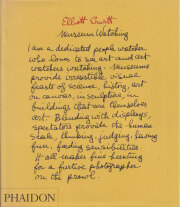 Elliott Erwitt
Museum Watching
I am a dedicated people watcher
who loves to see art and art
watchers watching. Museums
provide irresistible visual
feasts of science, history, art
on canvas, in sculpture, in
buildings that are themselves
art. Blending with displays,
spectators provide the human
scale, thinking, judging, having
fun, finding sensibilities.
It all makes fine hunting
for a furtive photographer
on the prowl.
PHAIDON